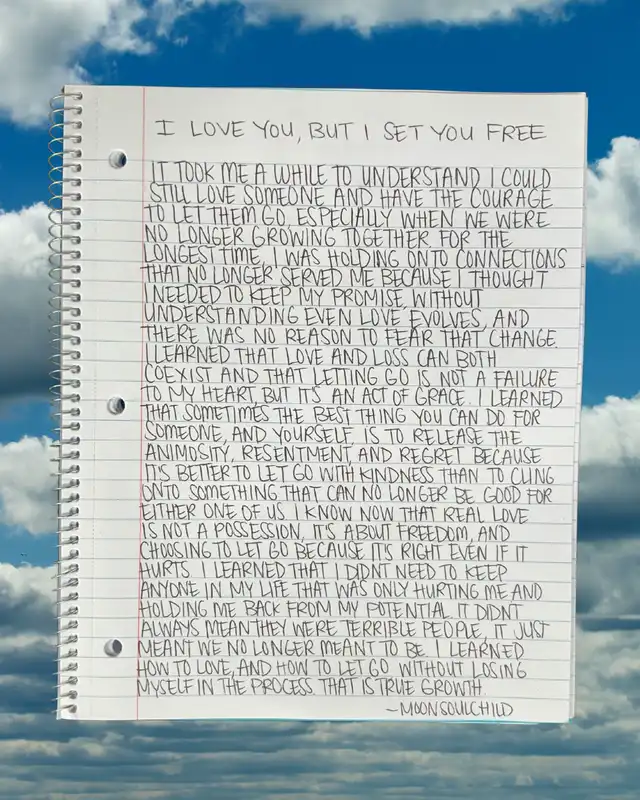 I LOVE YOU, BUT I SET YOU FREE
IT TOOK ME A WHILE TO UNDERSTAND I COULD
STILL LOVE SOMEONE AND HAVE THE COURAGE
TO LET THEM GO, ESPECIALLY WHEN WE WERE
NO LONGER GROWING TOGETHER FOR THE
LONGEST TIME, I WAS HOLDING ONTO CONNECTIONS
THAT NO LONGER SERVED ME BECAUSE I THOUGHT
I NEEDED TO KEEP MY PROMISE, WITHOUT
UNDERSTANDING EVEN LOVE EVOLVES, AND
THERE WAS NO REASON TO FEAR THAT CHANGE.
I LEARNED THAT LOVE AND LOSS CAN BOTH
COEXIST AND THAT LETTING GO IS NOT A FAILURE
TO MY HEART, BUT IT'S AN ACT OF GRACE. I LEARNED
THAT SOMETIMES THE BEST THING YOU CAN DO FOR
SOMEONE, AND YOURSELF, IS TO RELEASE THE
ANIMOSITY, RESENTMENT, AND REGRET BECAUSE
IT'S BETTER TO LET GO WITH KINDNESS THAN TO CLING
ONTO SOMETHING THAT CAN NO LONGER BE GOOD FOR
EITHER ONE OF US. I KNOW NOW THAT REAL LOVE
IS NOT A POSSESSION, IT'S ABOUT FREEDOM, AND
CHOOSING TO LET GO BECAUSE IT'S RIGHT EVEN IF IT
HURTS. I LEARNED THAT I DIDN'T NEED TO KEEP
ANYONE IN MY LIFE THAT WAS ONLY HURTING ME AND
HOLDING ME BACK FROM MY POTENTIAL. IT DIDN'T
ALWAYS MEAN THEY WERE TERRIBLE PEOPLE, IT JUST
MEANT WE NO LONGER MEANT TO BE. I LEARNED
HOW TO LOVE, AND HOW TO LET GO WITHOUT LOSING
MYSELF IN THE PROCESS THAT IS TRUE GROWTH.
~MOONSOULCHILD